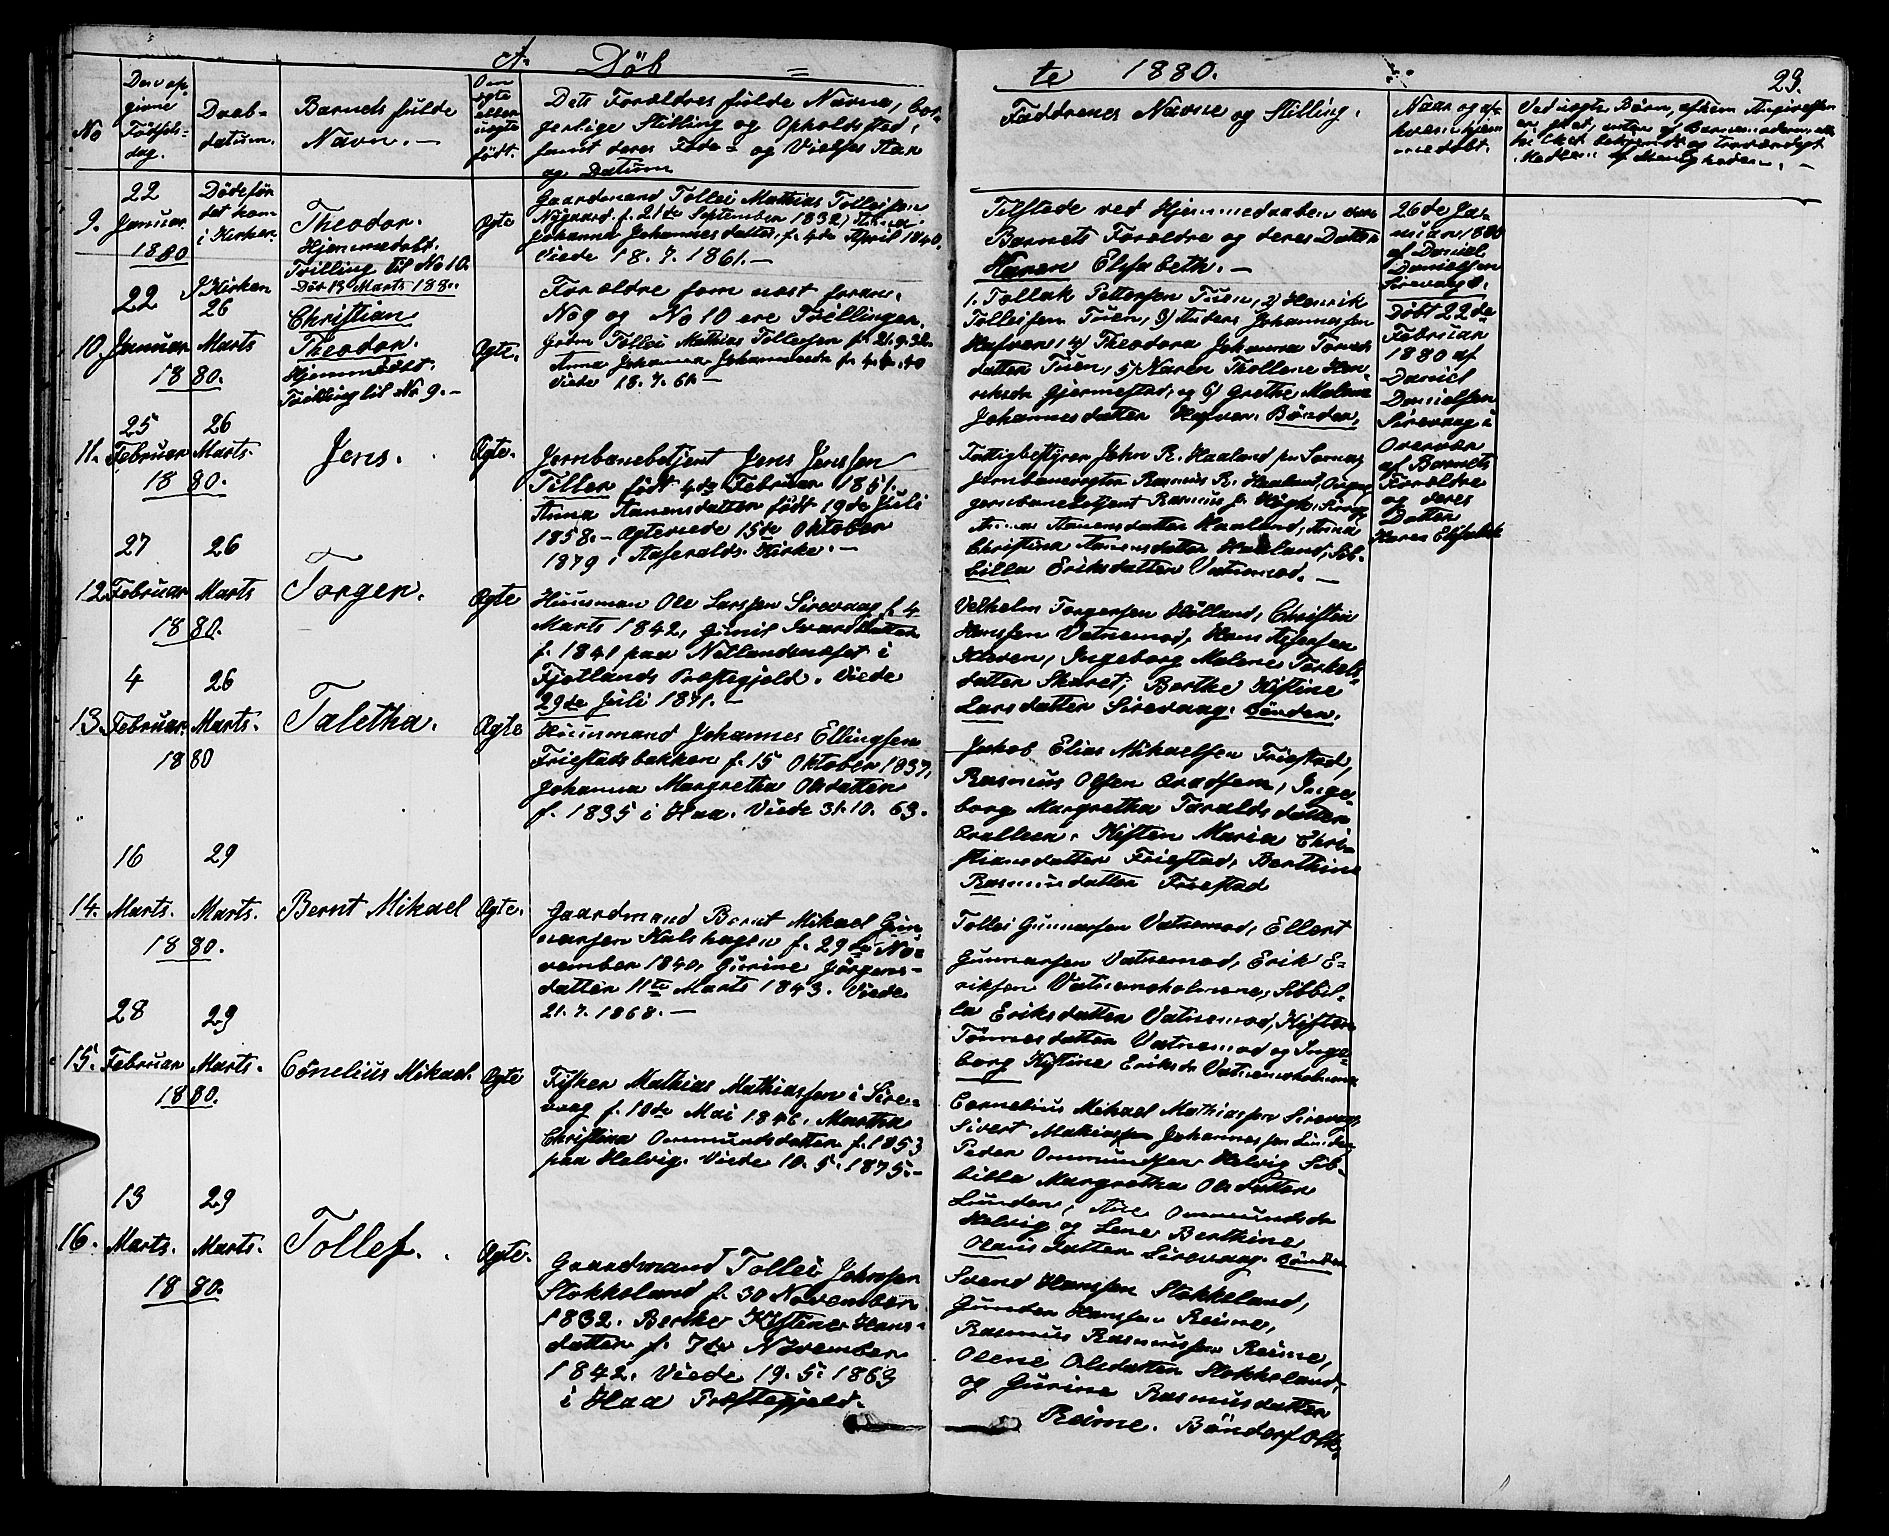 A. Döb = te 1880. 23.
No
Den opgivne Födselsdag.
Daabdatum.
Barnets fulde Navn. —
Om ægte eller uægte födt.
Dets Forældres fulde Navne, borgerlige Stilling og Opholdssted, samt deres Föde- og Vielses Aar og Datum
Faddrenes Navne og Stilling.
Naar og af hvem hjemmedöbt.
9.
22 Januar 1880
Döde för det kom i Kirken.
Theodor.
Hjemmedöbt.
Tvilling til No 10.
Död 13 Marts 1880.
Ægte
Gaardmand Tollei Mathias Tolleisen
Nygaard. f. 21de September 1832, Anna
Johanna Johannesdatter, f. 4de April 1840.
Viede 18. 7. 1861. —
Tilstede ved Hjemmedaaben vare
Barnets Forældre og deres Datter
Karen Elisabeth. —
26de Januar 1880
af Daniel
Danielsen
Sirevaag.
10.
22 Januar 1880.
I Kirken 26 Marts
Christian
Theodor.
Hjemmedöbt.
Tvilling til No 9. —
Ægte.
Forældre som næst foran.
No 9 og No 10 ere Tvillinger.
Gdm. Tollei Mathias Tollefsen f. 21. 9. 32.
Anna Johanna Johannesdr f. 4. 4. 40
Viede 18. 7. 61. —
1. Tollak Pettersen Tuen, 2) Henrik
Tolleisen Tuen, 3) Anders Johannessen
Hafven, 4) Theodora Johanna
datter Tuen, 5) Karen Thollene Hen-
riksdr Gjermestad, og 6) Grethe Malene
Johannesdatter Hafven. Bönder.
Döbt 22de
Februar
1880 af
Daniel
Danielsen
Sirevaag i
Overvær
af Barnets
Forældre
og deres
Datter
Karen Elisabeth
11.
25 Februar 1880.
26 Marts.
Jens.
Ægte.
Jernbanebetjent Jens Jenssen
Tiller födt 4de Februar 1851.
Anna Aanensdatter födt 19de Juli
1858. — Ægteviede 15de Oktober
1879 i Aaseralds Kirke. —
Fattigbestyrer John R. Haaland
Jernbanevogter Rasmus R. Haaland,
Jernbanebetjent Rasmus J. Högh,
Anna Aanensdatter Haaland, Anna
Christina Aanensdatter Haaland, Sib-
billa Eriksdatter Vatnemod. —
12.
27 Februar 1880.
26 Marts
Torger.
Ægte
Huusmand Ole Larssen Sirevaag f. 4
Marts 1842, Gunil Ivarsdatter
f. 1841 paa Netlandsnæset i
Fjotlands Præstegjeld. Viede
29de Juli 1871. —
Velhelm Torgersen Hölland, Christen
Hanssen Vatnemod, Hans
Kleven, Ingeborg Malene Torkels-
datter Skaret, Berthe Kistine
Larsdatter Sirevaag. Bönder.
13.
4 Februar 1880
26 Marts.
Taletha.
Ægte
Huusmand Johannes Ellingsen
Friestadsbakken f. 15 Oktober 1837,
Johanna Margretha Olsdatter
f. 1835 i Haa. Viede 31. 10. 63.
Jakob Elias Mikaelsen Friestad,
Rasmus Olsen Qvadsem, Inge-
borg Margretha Taraldsdatter
Qvalleen. Kisten Maria Chri-
stiansdatter Friestad, Berthine
Rasmusdatter Friestad
14.
16 Marts. 1880.
29 Marts.
Bernt Mikael
Ægte.
Gaardmand Bernt Mikael Gun
narsen Kalshagen f. 29de No-
vember 1840, Gurine Jörgens-
datter 11te Marts 1843. Viede
21. 7. 1868. —
Tollei Gunnarsen Vatnemod, Ellert
Gunnarsen Vatnemod, Erik E-
riksen Vatnemoholmene, Sibbil-
la Eriksdatter Vatnemod, Kisten
Tönnesdatter Vatnemod og Inge-
borg Kistine Eriksdr Vatnemoholmene
15.
28 Februar 1880.
29 Marts.
Cornelius Mikael.
Ægte
Fisker Mathias Mathiassen i Sire-
vaag f. 10de Mai 1846. Martha
Christina Ommundsdatter f. 1853
paa Helvig. Viede 10. 5. 1875. —
Cornelius Mikael Mathiassen Sirevaag
Sivert Mathiassen Johannessen Lunden
Peder Ommundsen Helvig Sib-
billa Margretha Olsdatter
Lunden, Ane Ommundsdr
Helvig og Lene Berthine
Olausdatter Sirevaag. Bönder
16.
13 Marts. 1880.
29 Marts.
Tollef.
Ægte.
Gaardmand Tollei Johnsen
Stokkeland f. 30 November
1832. Berthe Kistine Hans-
datter f. 7de November
1842. Viede 19. 5. 1863
i Haa Præstegjeld.
Svend Hanssen Stokkeland,
Gunder Hanssen Reime,
Rasmus Rasmussen Reime,
Olene Olsdatter Stokkeland,
og Gurine Rasmusdatter
Reime. Bönderfolk.